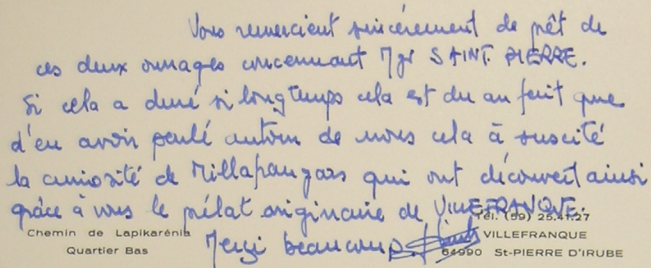 Vous remercient sincèrement de prêt de
ces deux ouvrages concernant Mgr SAINT. PIERRE.
Si cela a duré si longtemps cela est du au fait que
d'en avoir parlé autour de nous cela à suscité
la curiosité de Millafrangars qui ont découvert ainsi
grâce à vous le prélat originaire de VILLEFRANQUE.
Merci beaucoup.
Chemin de Lapikarénia
Quartier Bas
Tél. (59) 25.41.27
VILLEFRANQUE
64990 St-PIERRE D'IRUBE